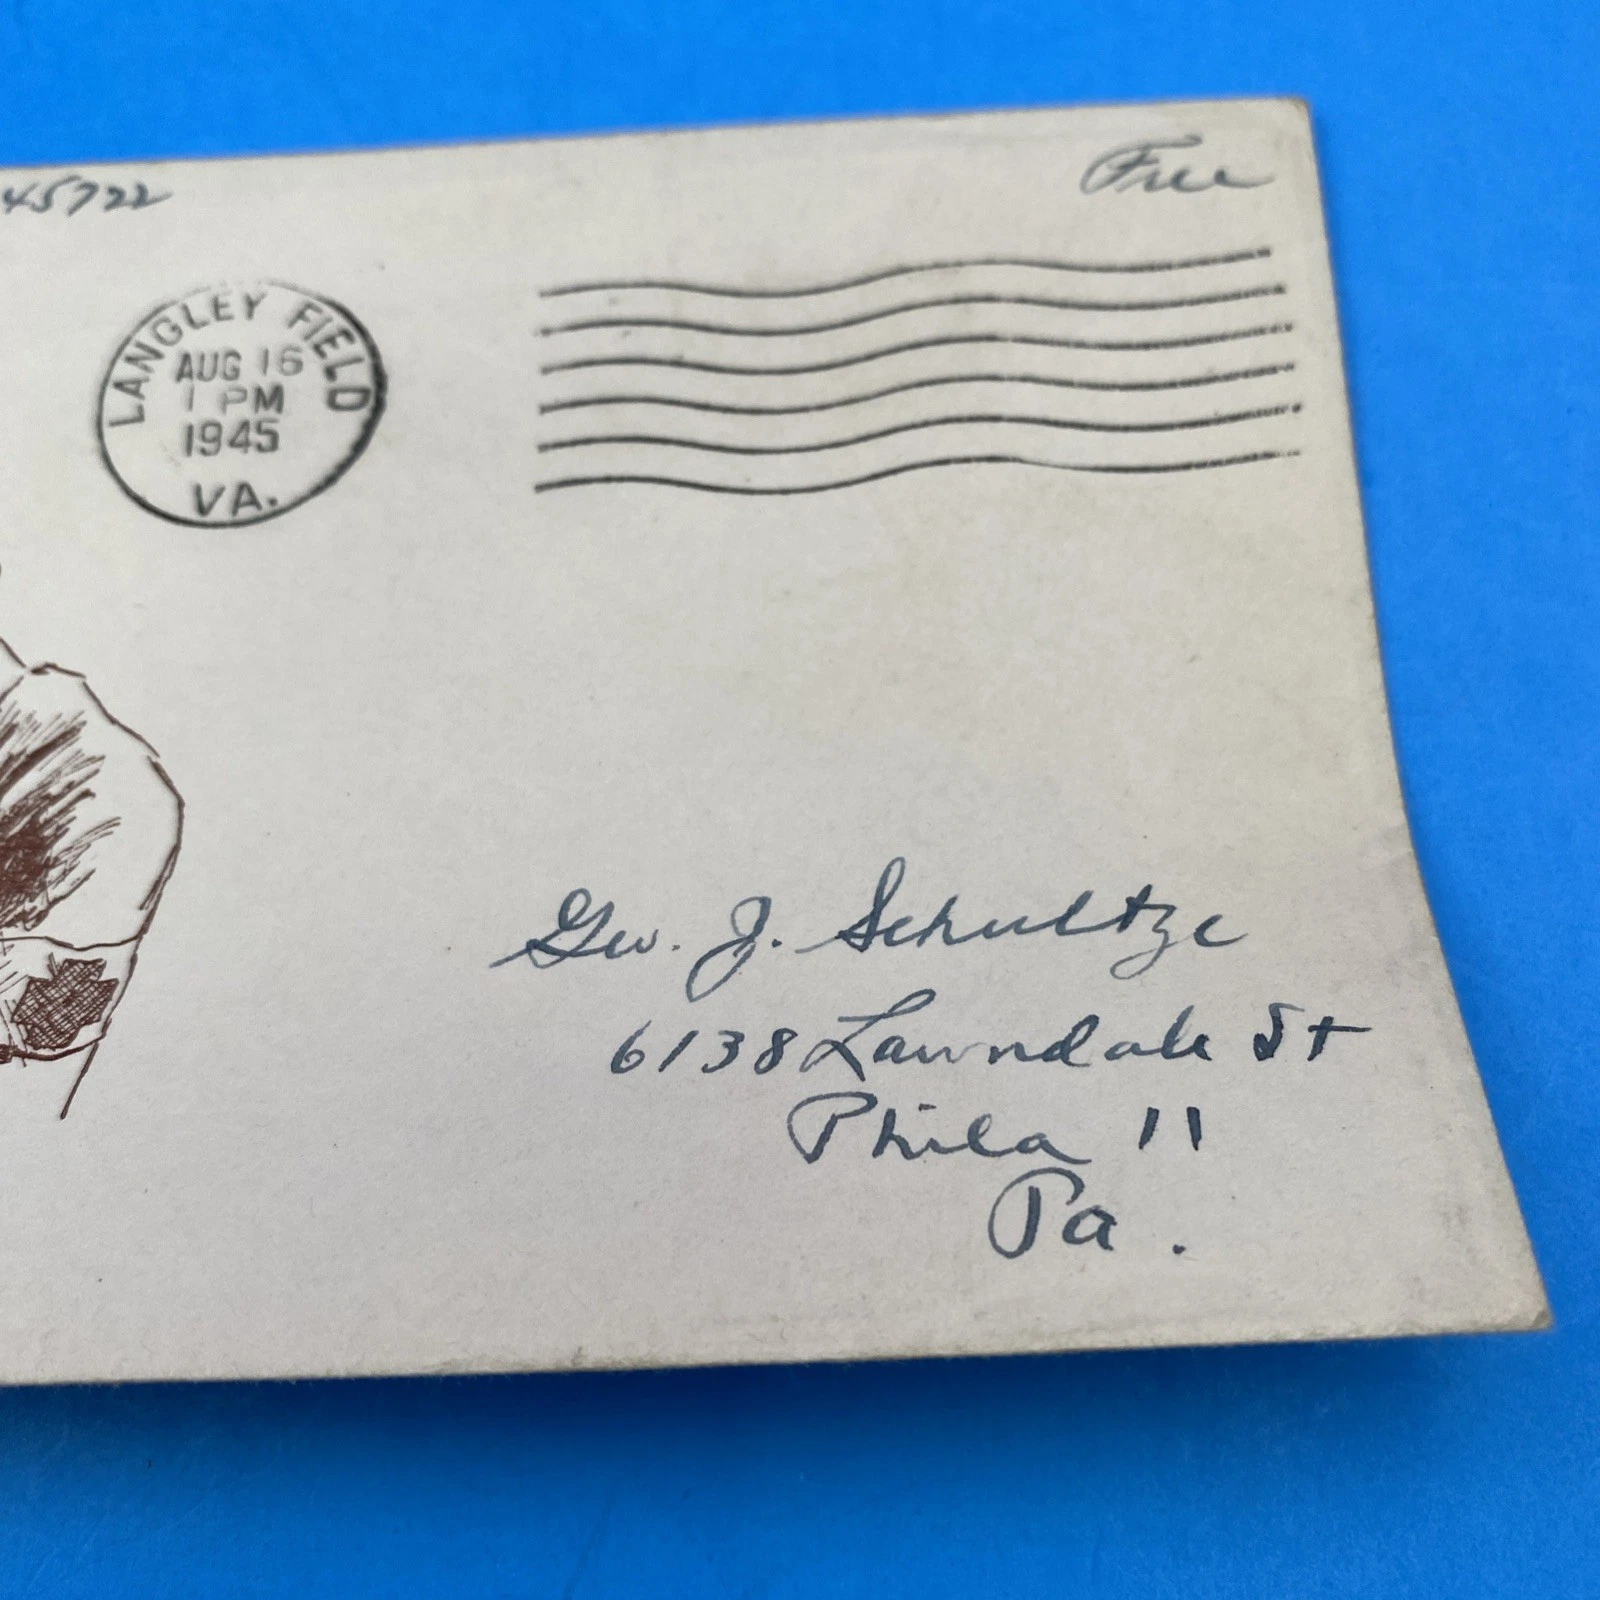 45722
Free
LANGLEY FIELD
AUG 16
1 PM
1945
VA.
Geo. J. Schultze
6138 Lawndale St
Phila 11
Pa.